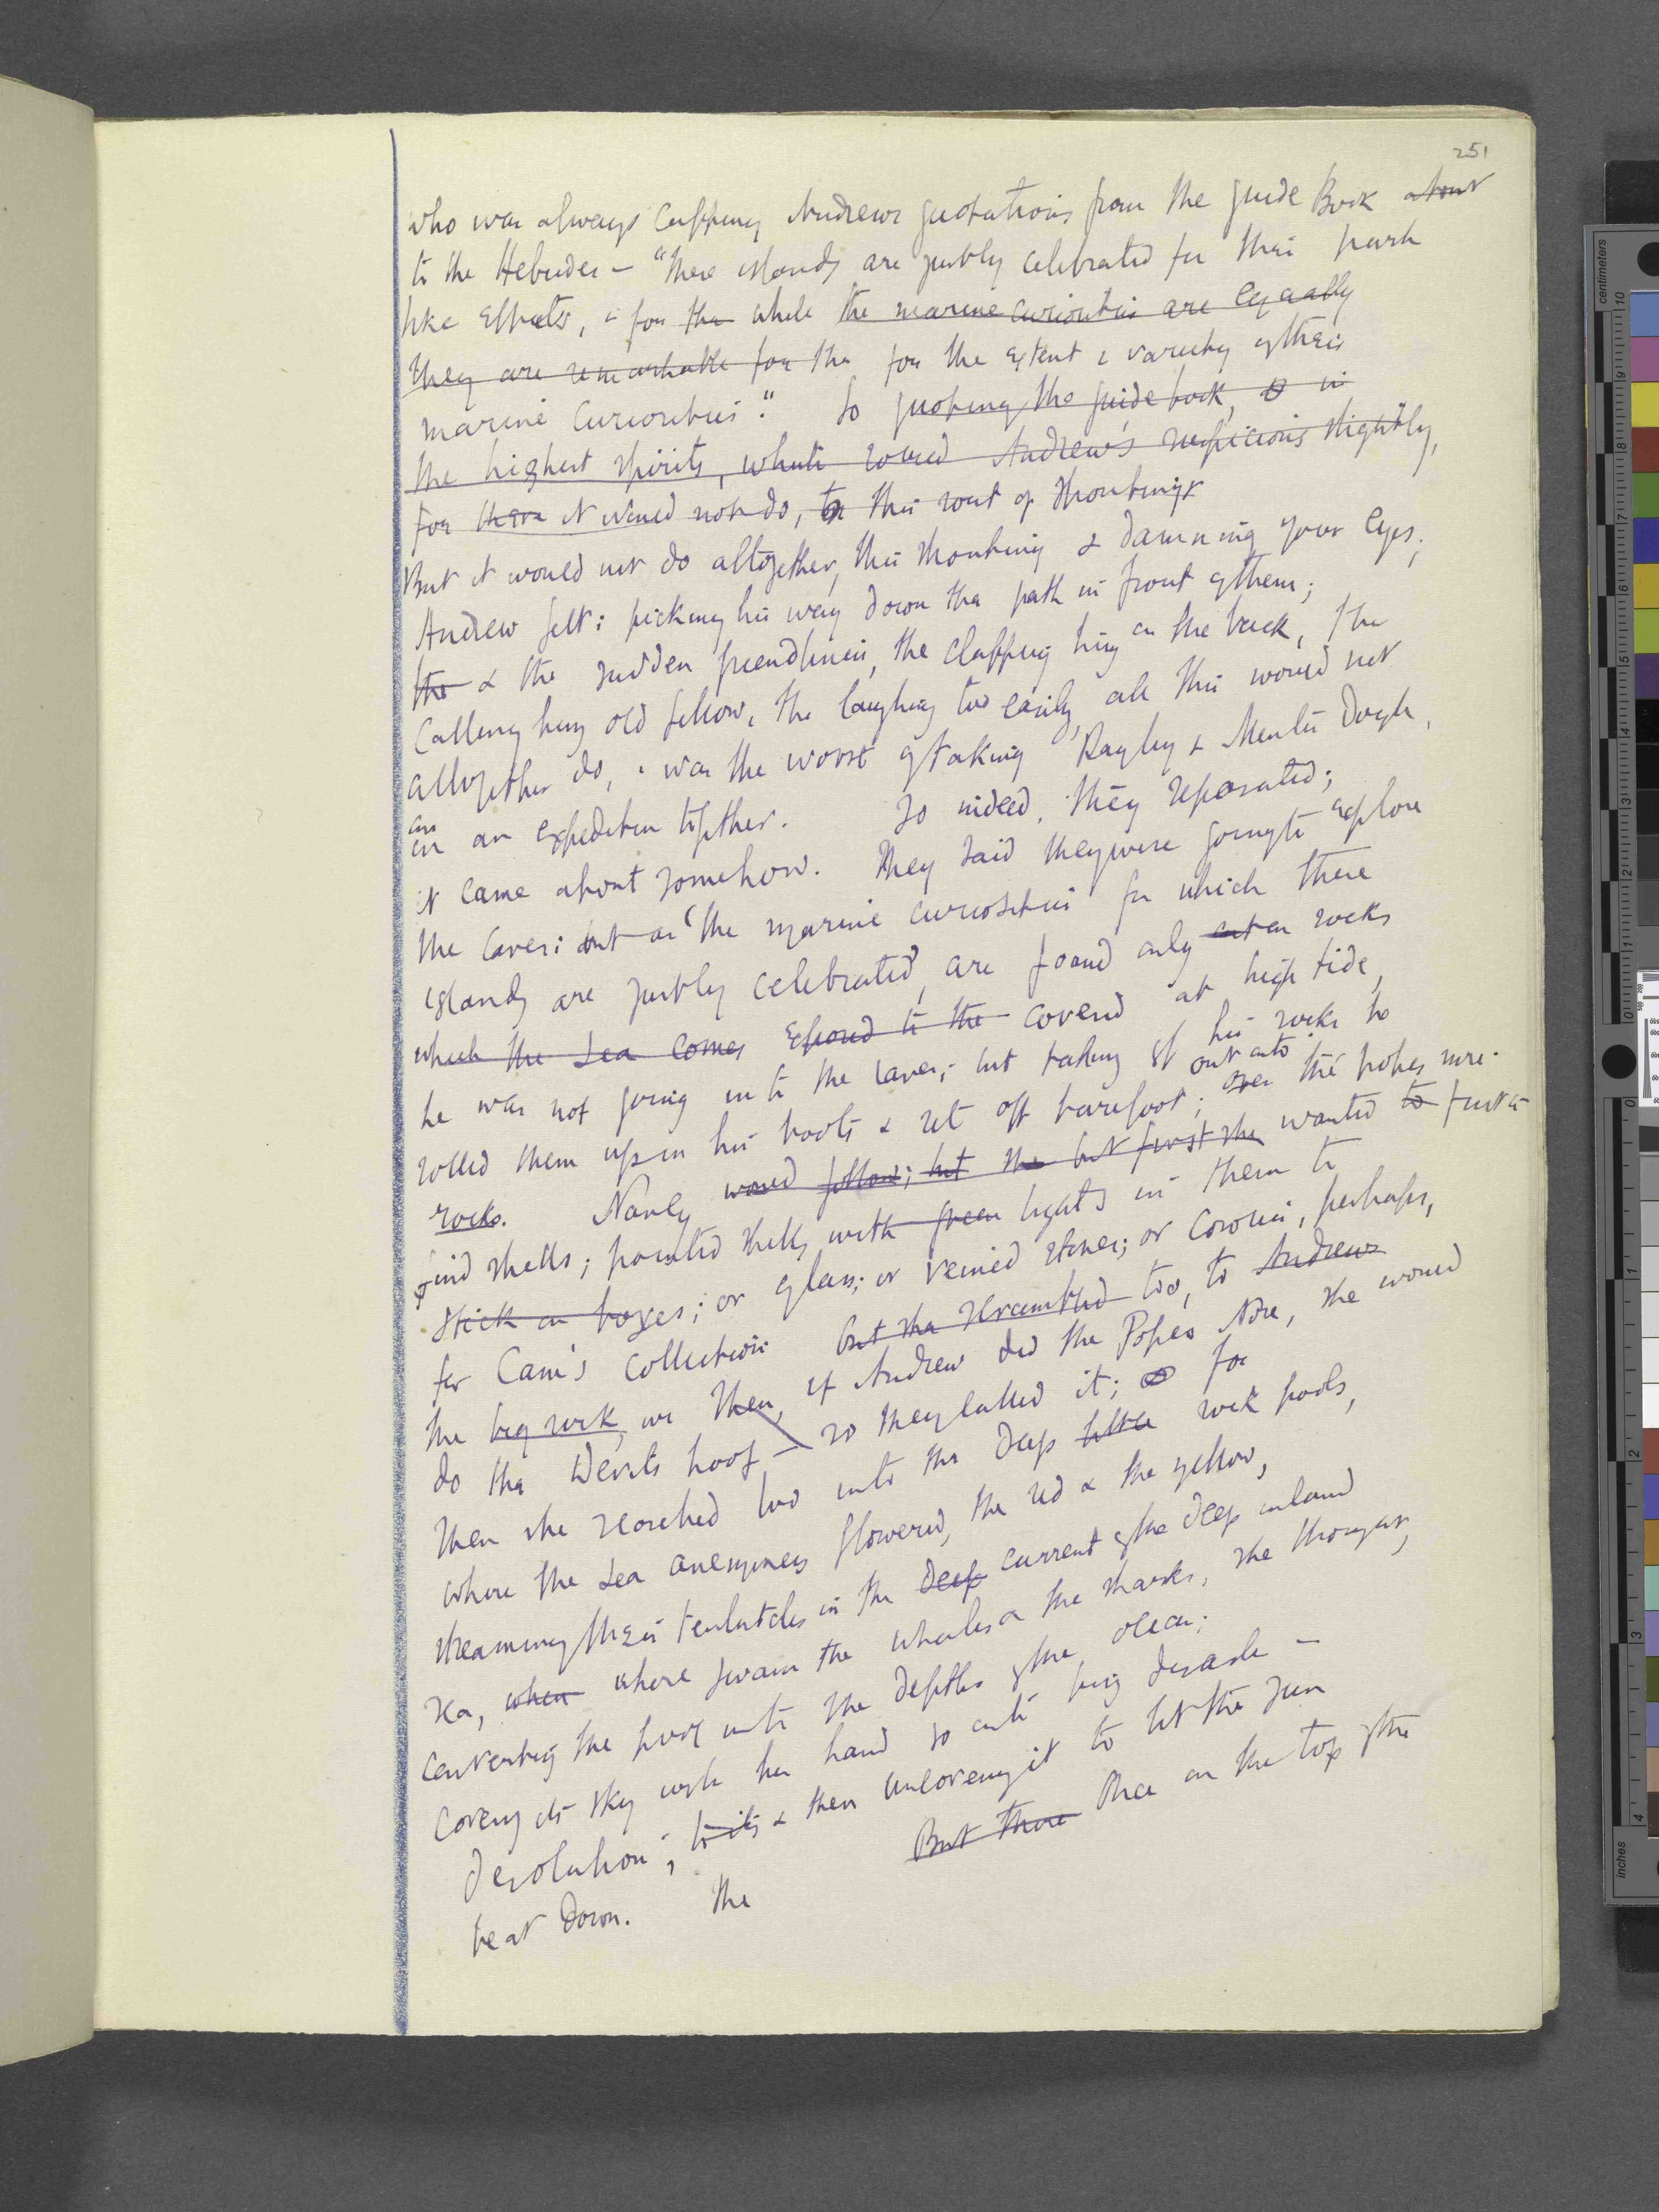 251
who was always capping Andrews quotations from the guide Book about
to the Hebrides - "These islands are justly celebrated for their park
like effects, & for the while the marine curiosities are equally
they are remarkable for the for the extent & variety of their
marine curiosities." So quoting the guide book, in
the highest spirits, which roused Andrew's suspicions slightly,
for there it would not do, this sort of shouting &
But it would not do altogether, this shouting & damning your eyes,
Andrew felt: picking his way down the path in front of them;
the & the sudden friendliness, the clapping him on the back, the
calling him old fellow, the laughing too easily, all this would not
altogether do, & was the worst of taking Rayley & Minta Doyle,
on an expedition together. So indeed, they separated;
it came about somehow. They said they were going to explore
the caves: but as "the marine curiosities for which these
islands are justly celebrated" are found only on rocks
which the sea comes exposed to the covered at high tide,
he was not going into the caves; but taking off his socks he
rolled them up in his boots & set off barefoot; over out onto the popes nose.
rocks. Nancy would follow; but she but first she wanted to first to
find shells; pointed shells with green lights in them to
stick on boxes; or glass; or veined stones; or corals, perhaps,
for Cam's collection But she scrambled too, to Andrews
the big rock, Then, if Andrew did the Popes Nose, she would
do the Devils hoof - so they called it; for
Then she reached too into the deep little rock pools,
where the sea anemones flowered, the red & the yellow,
streaming their tentacles in the deep current of the deep inland
sea, when where swam the whales & the sharks, she thought,
converting the pool into the depths of the ocean;
covering its sky with her hand so as to bring desola -
desolation; & then uncovering it to let the sun
beat down. The But there Once on the top of the